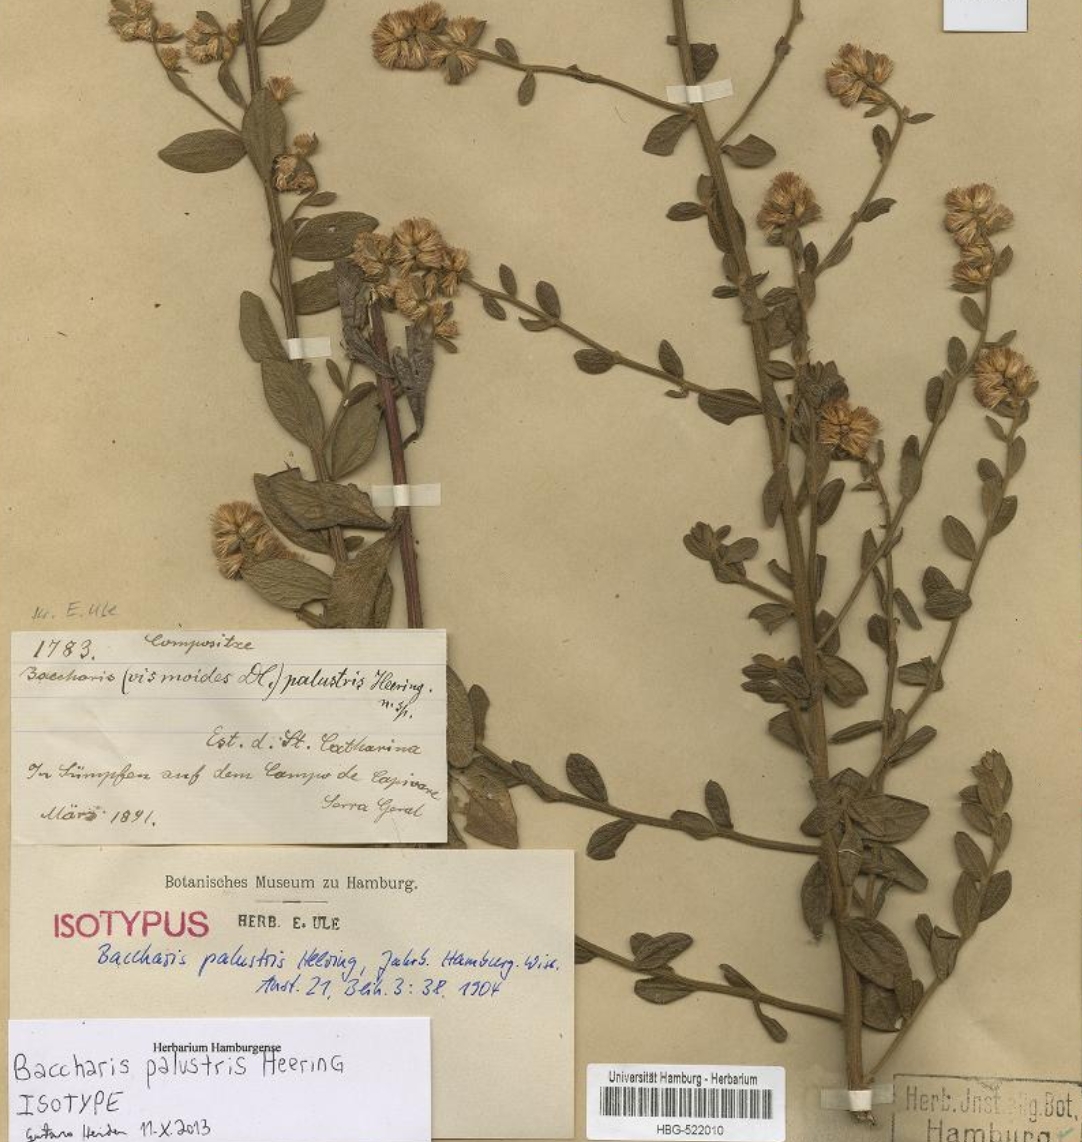 E. Ule
1783. Compositae
Baccharis (vismoides DC.) palustris Heering.
n. sp.
Est. d. St. Catharina
In Sümpfen auf dem Campo de Capivare
Serra Geral
März 1891.
Botanisches Museum zu Hamburg.
ISOTYPUS HERB. E. ULE
Baccharis palustris Heering, Jahrb. Hamburg. Wiss.
Anst. 21, Beih. 3: 38. 1904
Herbarium Hamburgense
Baccharis palustris Heering
ISOTYPE
Gustavo Heiden 11-X-2013
Universität Hamburg - Herbarium
HBG-522010
Herb. Inst. allg. Bot.
Hamburg